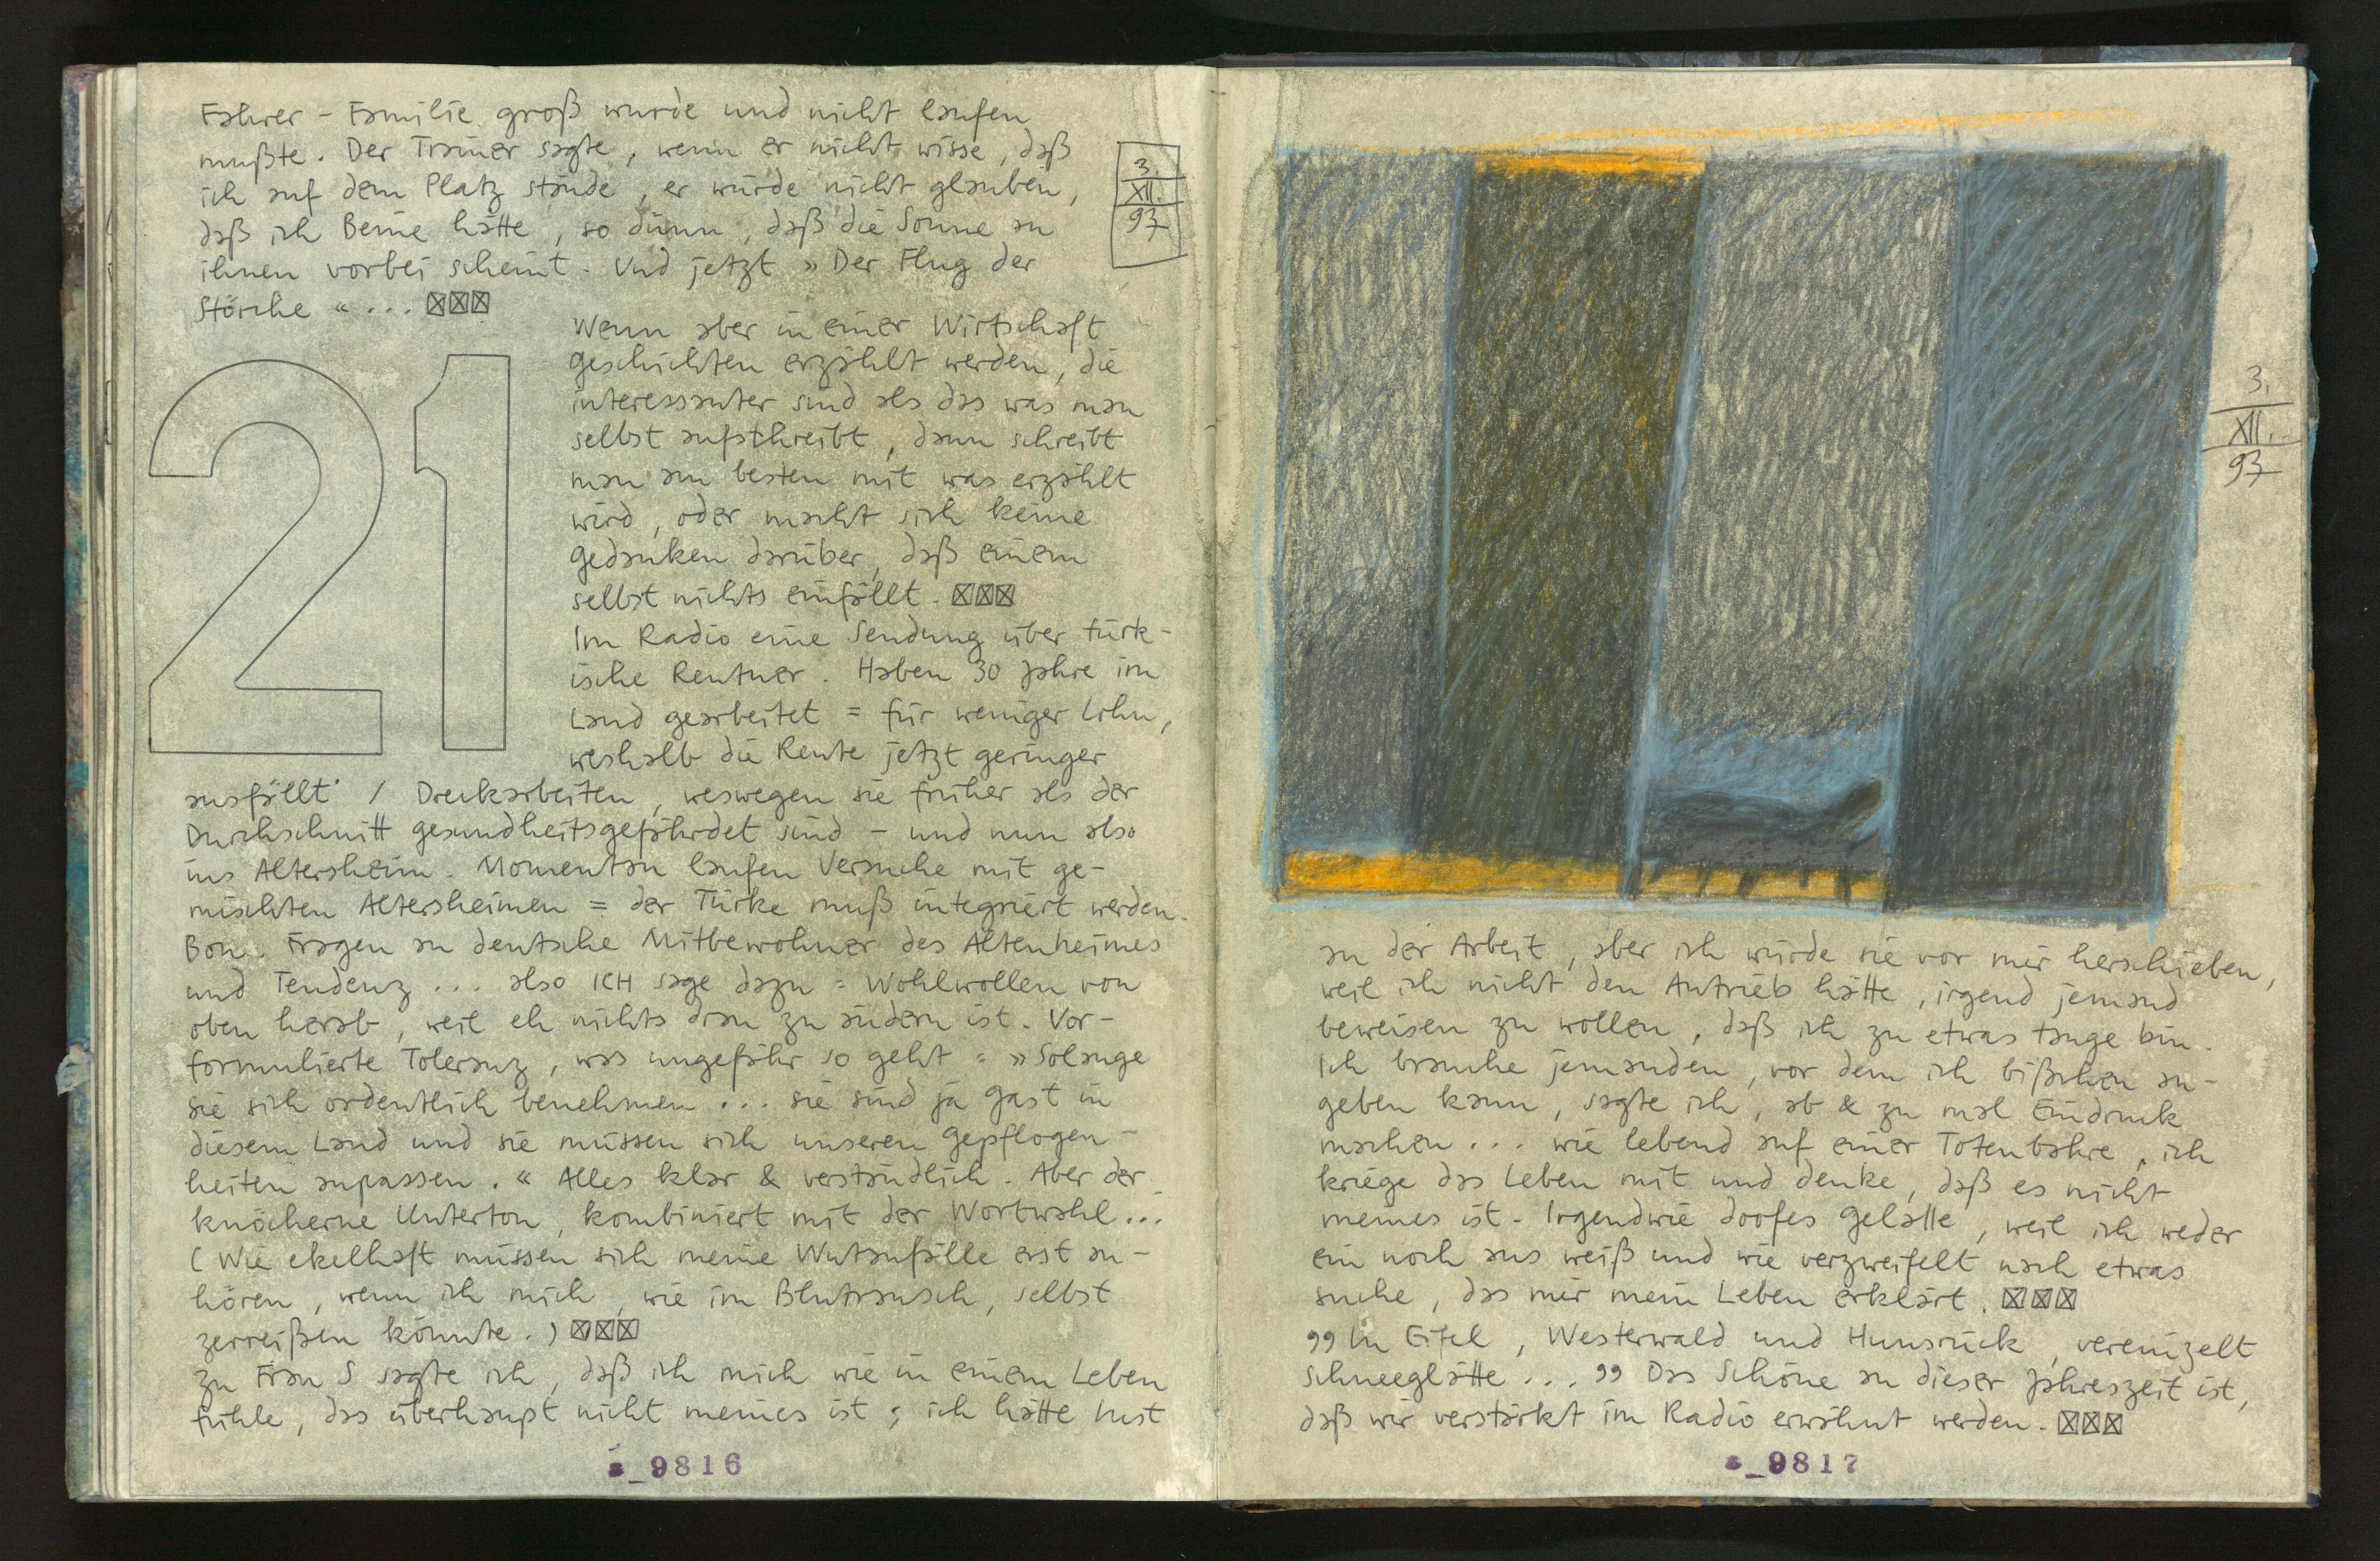 Fahrer - Familie groß wurde und nicht laufen
mußte. Der Trainer sagte, wenn er nicht wisse, daß
ich auf dem Platz stände, er würde nicht glauben,
daß ich Beine hätte, so dünn, daß die Sonne an
ihnen vorbei scheint. Und jetzt » Der Flug der
Störche « ...
3.
XII.
93
21
Wenn aber in einer Wirtschaft
geschichten erzählt werden, die
interessanter sind als das was man
selbst aufschreibt, dann schreibt
man am besten mit was erzählt
wird, oder macht sich keine
gedanken darüber, daß einem
selbst nichts einfällt.
Im Radio eine Sendung über türk-
ische Rentner. Haben 30 Jahre im
Land gearbeitet = für weniger Lohn,
weshalb die Rente jetzt geringer
ausfällt / Dreckarbeiten, weswegen sie früher als der
Durchschnitt gesundheitsgefährdet sind - und nun also
ins Altersheim. Momentan laufen Versuche mit ge-
mischten Altersheimen = der Türke muß integriert werden.
Bon. Fragen an deutsche Mitbewohner des Altenheimes
und Tendenz ... also ICH sage dazu = Wohlwollen von
oben herab, weil eh nichts dran zu ändern ist. Vor-
formulierte Toleranz, was ungefähr so geht = » Solange
sie sich ordentlich benehmen ... sie sind ja gast in
diesem Land und sie müssen sich unseren gepflogen-
heiten anpassen. « Alles klar & verständlich. Aber der
knöcherne Unterton, kombiniert mit der Wortwahl...
(Wie ekelhaft müssen sich meine Wutanfälle erst an-
hören, wenn ich mich, wie im Blutrausch, selbst
zerreißen könnte.)
zu Frau S sagte ich, daß ich mich wie in einem Leben
fühle, das überhaupt nicht meines ist; ich hätte Lust
a_9816
3.
XII.
93
an der Arbeit, aber ich würde sie vor mir herschieben,
weil ich nicht den Antrieb hätte, irgend jemand
beweisen zu wollen, daß ich zu etwas tauge bin.
Ich brauche jemanden, vor dem ich bißchen an-
geben kann, sagte ich, ab & zu mal Eindruck
machen ... wie lebend auf einer Totenbahre, ich
kriege das Leben mit und denke, daß es nicht
meines ist. Irgendwie doofes gelalle, weil ich weder
ein noch aus weiß und wie verzweifelt nach etwas
suche, das mir mein Leben erklärt.
" In Eifel, Westerwald und Hunsrück, vereinzelt
schneeglätte ... " Das Schöne an dieser Jahreszeit ist,
daß wir verstärkt im Radio erwähnt werden.
a_9817